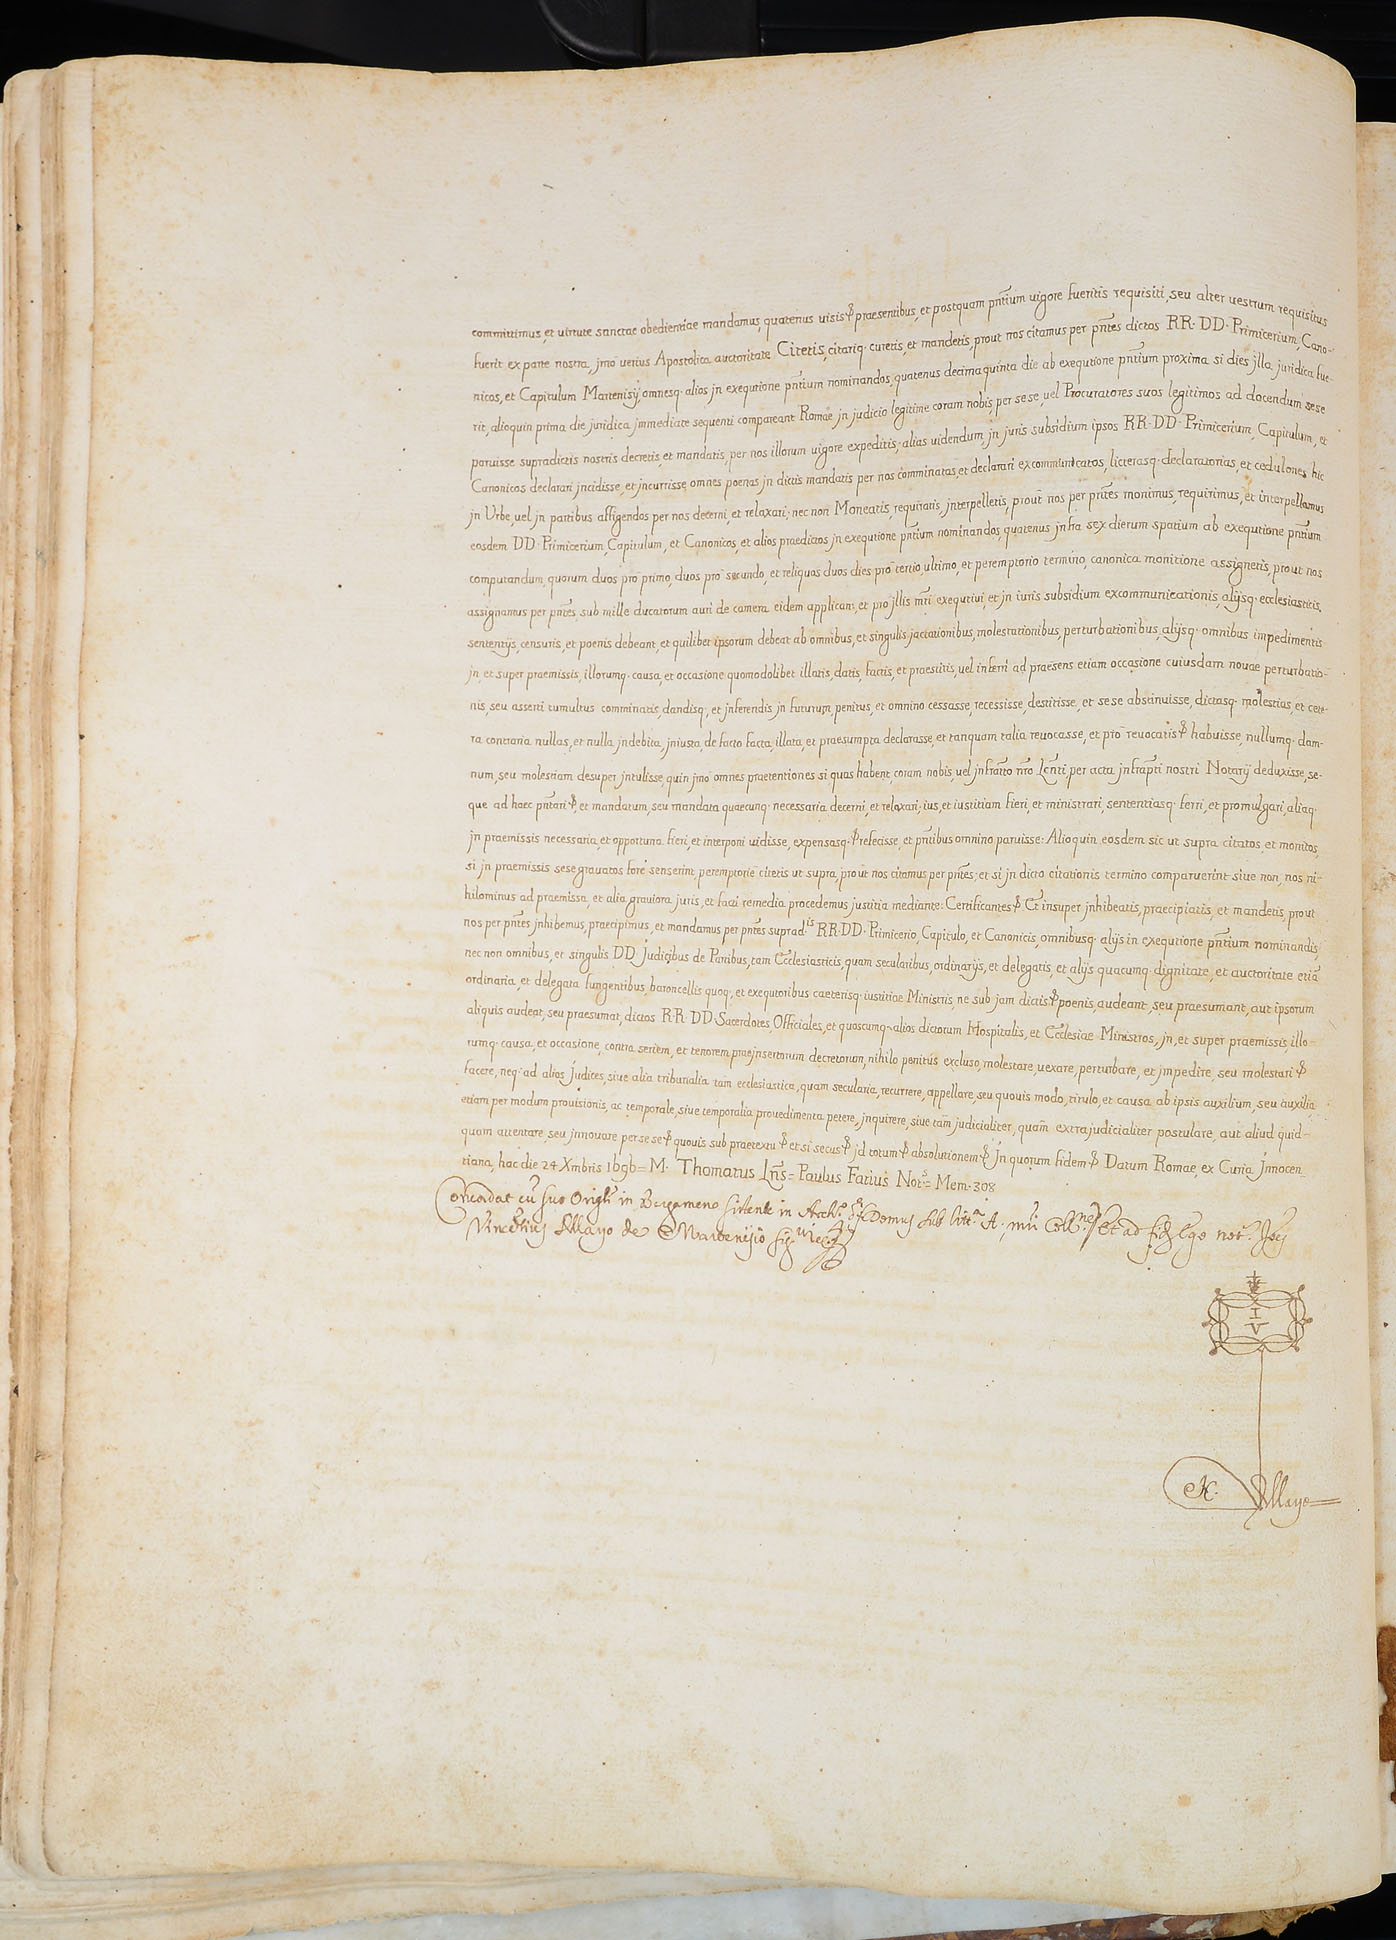 committimus, et uirtute sanctae obedientiae mandamus, quatenus uisis & praesentibus, et postquam pntium uigore fueritis requisiti, seu alter uestrum requisitus
fuerit ex parte nostra, jmo uerius Apostolica auctoritate Citetis, citariq. curetis, et mandetis, prout nos citamus per pntes dictos RR. DD. Primicerium, Cano-
nicos, et Capitulum Martenisij, omnesq. alios jn exequtione pntium nominandos, quatenus decima quinta die ab exequtione pntium proxima si dies jlla juridica fue-
rit, alioquin prima die juridica jmmediate sequenti compareant Romae jn judicio legitime coram nobis, per se se, uel Procuratores suos legitimos ad docendum sese
paruisse supradictis nostris decretis, et mandatis, per nos illorum uigore expeditis; alias uidendum, jn juris subsidium ipsos RR. DD. Primicerium, Capitulum, et
Canonicos declarari jncidisse, et jncurrisse omnes poenas jn dictis mandatis per nos comminatas, et declarari excommunicatos, licterasq. declaratorias, et cedulones hic
jn Urbe, uel jn partibus affigendos per nos decerni, et relaxari; nec non Moneatis, requiratis, jnterpelletis, prout nos per pntes monimus, requirimus, et interpellamus
eosdem DD. Primicerium, Capitulum, et Canonicos, et alios praedictos jn exequtione pntium nominandos, quatenus jnfra sex dierum spatium ab exequtione pntium
computandum, quorum duos pro primo, duos pro secundo, et reliquos duos dies pro tertio, ultimo, et peremptorio termino, canonica monitione assignetis, prout nos
assignamus per pntes sub mille ducatorum auri de camera eidem applicani, et pro jllis mri exequtiui, et jn iuris subsidium excommunicationis, alijsq. ecclesiasticis,
sententijs, censuris, et poenis debeant, et quilibet ipsorum debeat ab omnibus, et singulis jactationibus, molestationibus, perturbationibus, alijsq. omnibus impedimentis
jn, et super praemissis, illorumq. causa, et occasione quomodolibet illatis, datis, factis, et praestitis, uel inferri ad praesens etiam occasione cuiusdam nouae perturbatio-
nis, seu asserti tumultus comminatis, dandisq., et jnferendis jn futurum, penitus, et omnino cessasse, recessisse, destitisse, et sese abstinuisse, dictasq. molestias, et cete-
ra contraria nullas, et nulla jndebita, jniusta, de facto facta, illata, et praesumpta declarasse, et tanquam talia reuocasse, et pro reuocatis & habuisse, nullumq. dam-
num, seu molestiam desuper jntulisse, quin jmo omnes praetentiones si quas habent, coram nobis, uel jnfratto nro Lcnti, per acta jnfrapti nostri Notarij deduxisse, se-
que ad haec pntari & et mandatum, seu mandata quaecunq. necessaria decerni, et relaxari; ius, et iustitiam fieri, et ministrari, sententiasq. ferri, et promulgari, aliaq.
jn praemissis necessaria, et opportuna fieri, et interponi uidisse, expensasq. & refecisse, et pntibus omnino paruisse: Alioquin eosdem sic ut supra citatos, et monitos,
si jn praemissis sese grauatos fore senserint, peremptorie citetis ut supra, prout nos citamus per pntes; et si jn dicto citationis termino comparuerint siue non, nos ni-
hilominus ad praemissa, et alia grauiora juris, et facti remedia procedemus justitia mediante: Certificantes & Et insuper jnhibeatis, praecipiatis, et mandetis, prout
nos per pntes jnhibemus, praecipimus, et mandamus per pntes suprad.is RR. DD. Primicerio, Capitulo, et Canonicis, omnibusq. alijs in exequtione pntium nominandis,
nec non omnibus, et singulis DD. Judicibus de Partibus, tam Ecclesiasticis, quam secularibus, ordinarijs, et delegatis, et alijs quacumq. dignitate, et auctoritate etia
ordinaria, et delegata fungentibus, baroncellis quoq., et exequtoribus caeterisq. iustitiae Ministris, ne sub jam dictis & poenis, audeant, seu praesumant, aut ipsorum
aliquis audeat, seu praesumat, dictos R.R. DD. Sacerdotes, Officiales, et quoscumq. alios dictorum Hospitalis, et Ecclesiae Ministros, jn, et super praemissis, illo-
rumq. causa, et occasione, contra seriem, et tenorem praejnsertorum decretorum, nihilo penitus excluso, molestare, uexare, perturbare, et jmpedire, seu molestari &
facere, neq. ad alios Judices, siue alia tribunalia tam ecclesiastica, quam secularia, recurrere, appellare, seu quouis modo, titulo, et causa ab ipsis auxilium, seu auxilia
etiam per modum prouisionis, ac temporale, siue temporalia prouedimenta petere, jnquirere, siue tam judicialiter, quam extrajudicialiter postulare, aut aliud quid-
quam attentare, seu jnnouare per se se & quouis sub praetextu & et si secus & jd totum & absolutionem & Jn quorum fidem & Datum Romae, ex Curia Jnnocen-
tiana, hac die 24 Xmbris 1696 = M. Thomatus Lns = Paulus Fatius Not.s = Mem. 308
Concordat cu suo Origli in Bergameno sistente in Arch.o Domus sub litt.a A. et ad fid. Ego not.
Vincetius Mayo de Martenisio
I
V
N. Mayo